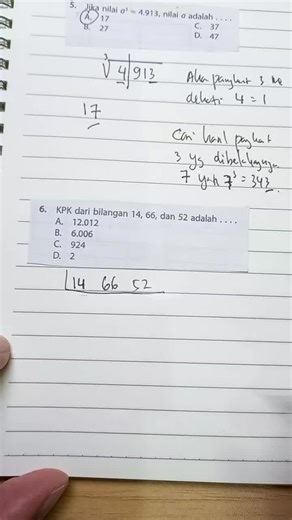 5. Jika nilai a³ = 4.913, nilai a adalah . . . .
A. 17
B. 27
C. 37
D. 47
³√4|913
Akar pangkat 3 yg
dekati 4 = 1
17
Cari hasil pangkat
3 yg dibelakangnya
7 yah 7³ = 343
6. KPK dari bilangan 14, 66, dan 52 adalah . . . .
A. 12.012
B. 6.006
C. 924
D. 2
14 66 52